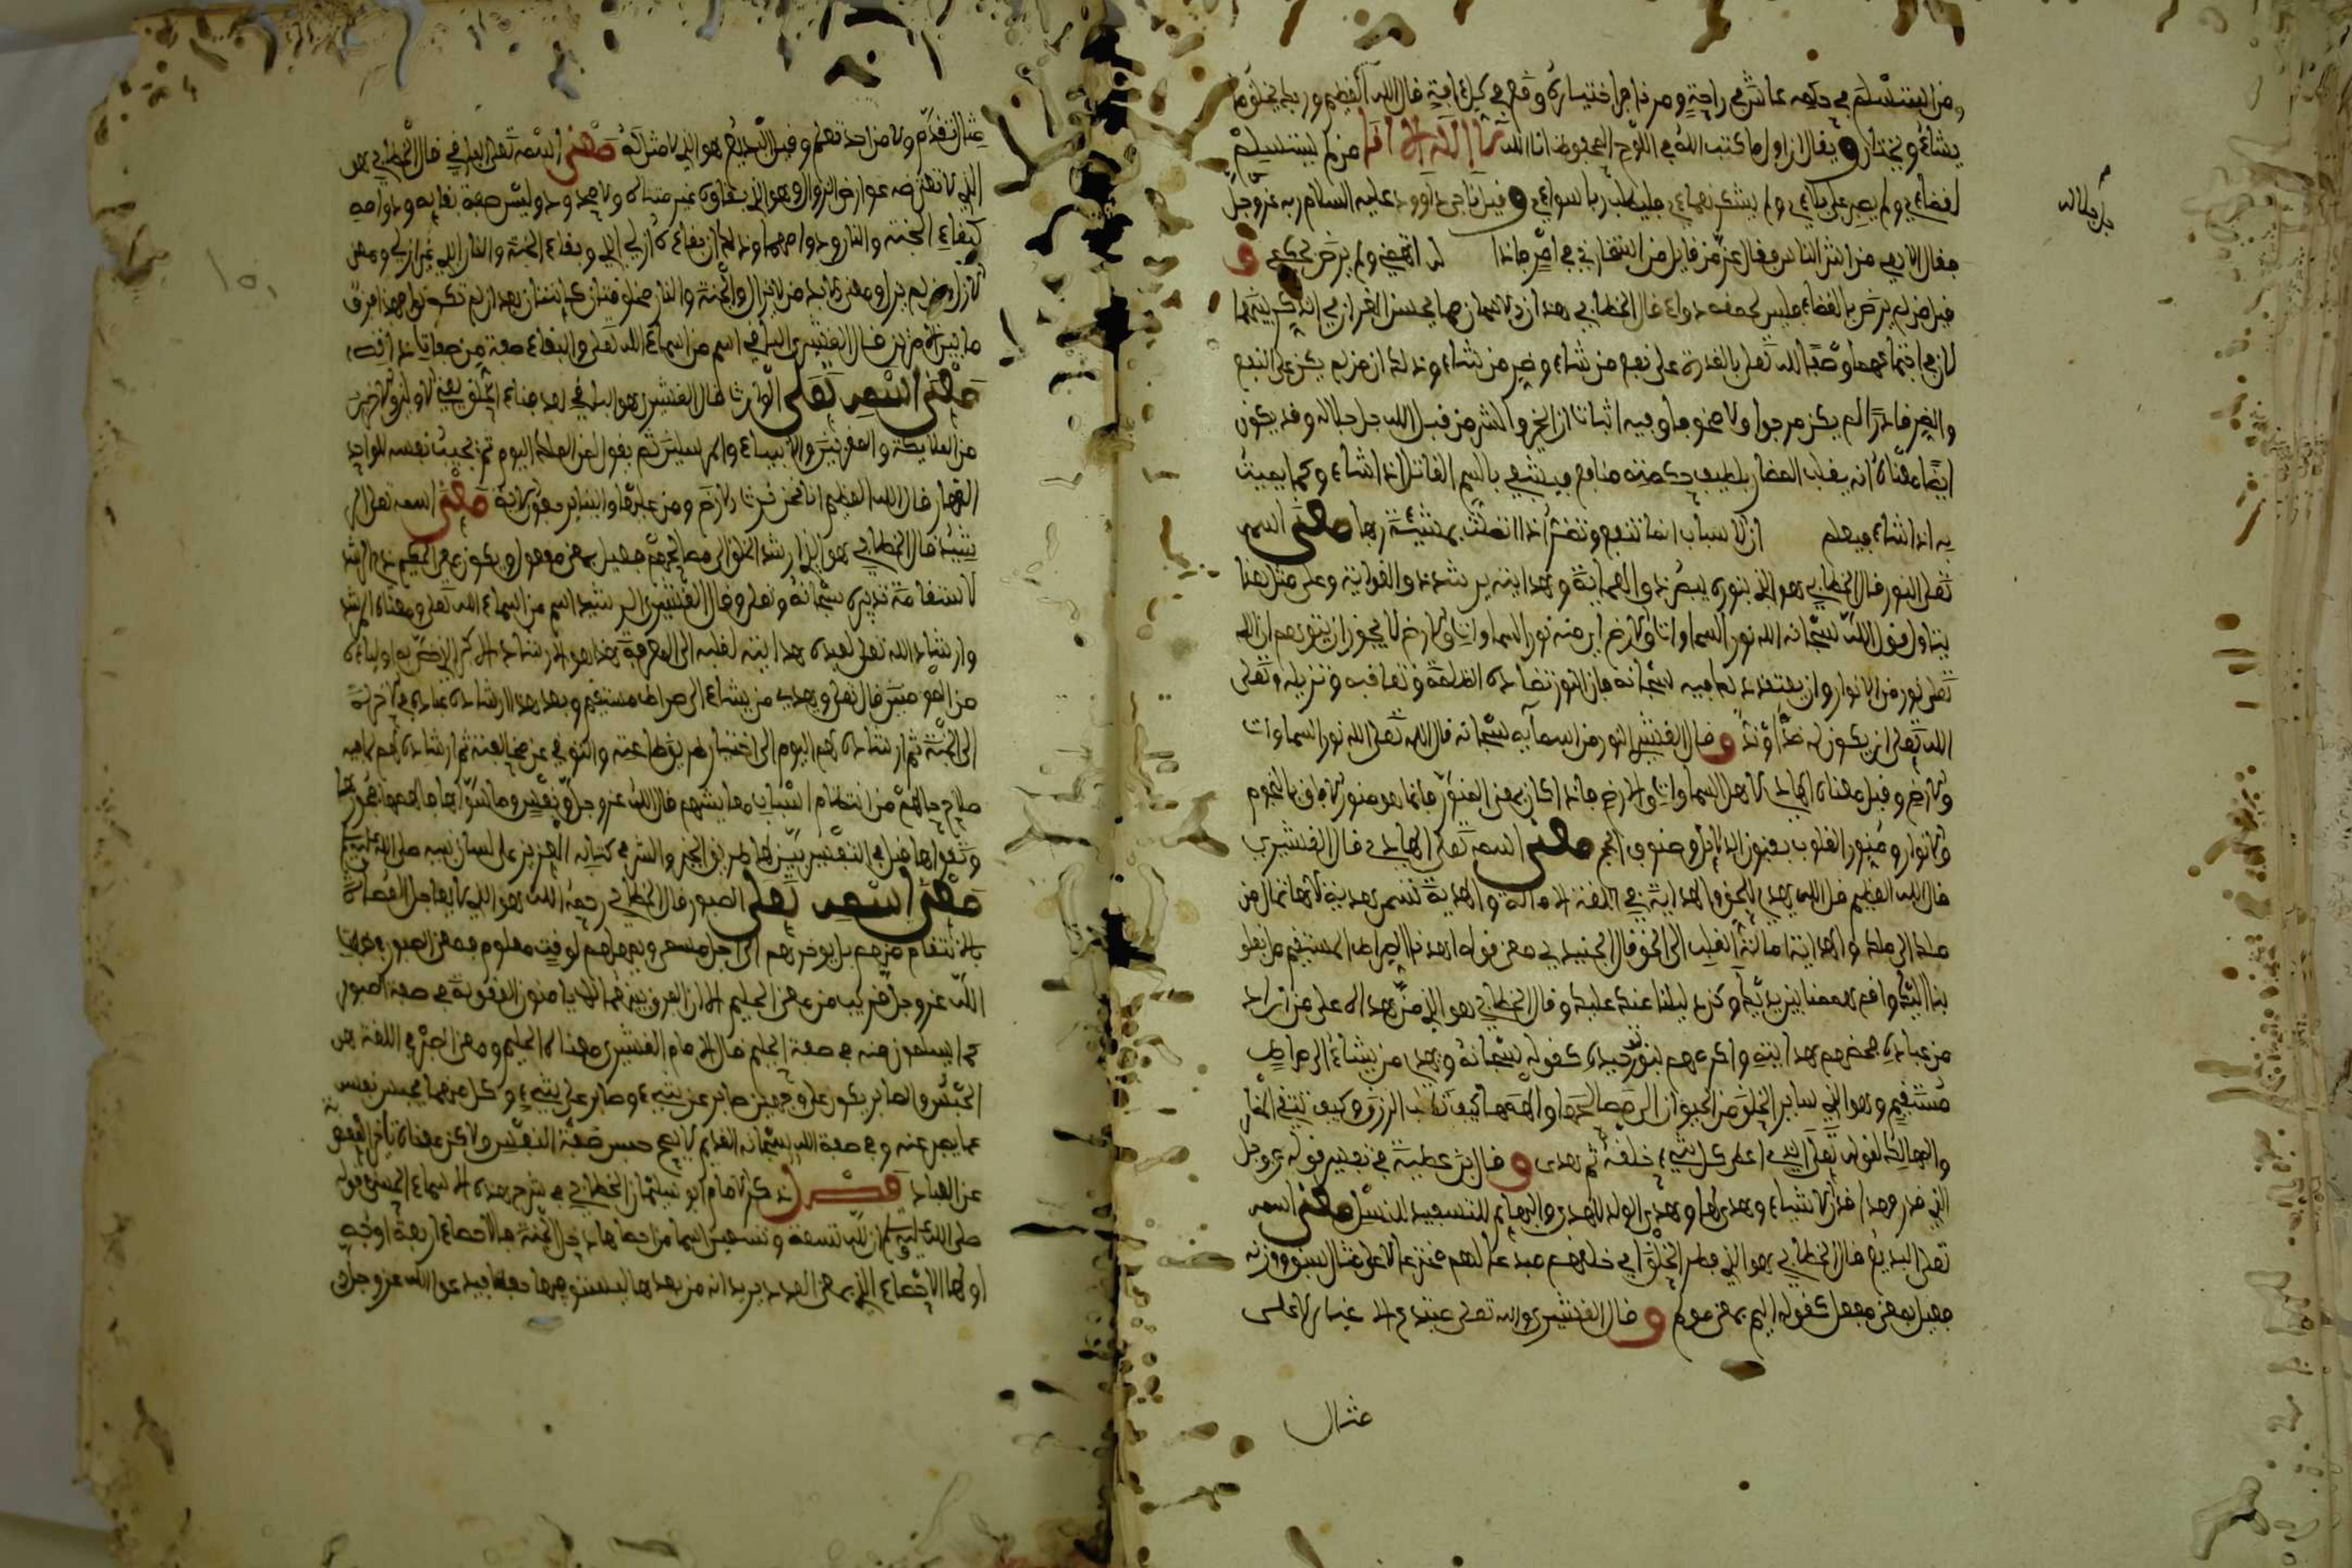 ومن استسلم في حكمه عاش في راحة ومن ذاجر اختياره وقع في كل افة قال الله العظيم وربك يخلق ما
يشاء ويختار ويقال ان اول ما كتب الله في اللوح المحفوظ انا الله لا اله الا انا من لم يستسلم
لقضاءي ولم يصبر على بلاءي ولم يشكر نعماءي فليطلب ربا سواءي وقيل ناجى داوود عليه السلام ربه عز وجل
فقال الاهي من اشر الناس فقال عز من قايل من استخارني في امر فاذا له اقضه ولم يرض بحكمي و
قيل من لم يرض بالقضاء فليس لحمقه دواء قال الخطابي هذان الاسمان مما يحسن القران في الذكر بينهما
لان في اجتماعهما وصفا لله تعلى بالقدرة على نفع من شاء وضر من شاء وذلك ان من لم يكن على النفع
والضر قادرا لم يكن مرجوا ولا مخوفا وفيه اثبات ان الخير والشر من قبل الله جل جلاله وقد يكون
ايضا معناه انه يقلب المضار بلطيف حكمته منافع فيشفي بالسم القاتل اذا شاء كما يميت
به اذا شاء فيعلم ان الاسباب انما تنفع وتضر اذا اتصلت بمشيئة ربها معنى اسمه
تعلى النور قال الخطابي هو الذي بنوره يبصر ذو العماية وبهدايته يرشد ذو الغواية وعلى مثل هذا
يتاول قول الله سبحانه الله نور السماوات والارض اي منه نور السماوات والارض لا يجوز ان يتوهم ان الله
تعلى نور من الانوار وان يعتقد ذلك فيه سبحانه فان النور تضاده الظلمة وتعاقبه وتزيله وتعلى
الله تعلى ان يكون له ضد او ند وقال القشيري النور من اسمايه سبحانه قال الله تعلى الله نور السماوات
والارض وقيل معناه الهادي لاهل السماوات والارض فاذا كان بمعنى المنور فانما هو منور الافاق بالنجوم
والانوار ومنور القلوب بفنون الدلائل وصنوف الحجج معنى اسمه تعلى الهادي قال القشيري
قال الله العظيم قل الله يهدي للحق والهداية في اللغة الامالة والهدية تسمى هدية لانها تمال من
ملك الى ملك والهداية امالة القلب الى الحق قال الجنيد في معنى قوله اهدنا الصراط المستقيم مل بقلوبنا
بنا اليك واقم هممنا بين يديك وكن دليلنا عندك عليك وقال الخطابي هو الذي من بهداه على من اراد
من عباده فخصهم بهدايته واكرمهم بنور توحيده كقوله سبحانه ويهدي من يشاء الى صراط
مستقيم وهو الذي ساير الخلق من الحيوان الى مصالحها والهمها كيف تطلب الرزق وكيف تتقي المضار
والمهالك لقوله تعلى الذي اعطى كل شيء خلقه ثم هدى وقال بن عطية في تفسير قوله عز وجل
الذي قدر فهدا قدر الاشياء وهدى لها وهدى الولد للثدي والبهايم للتسفيد للنسل معنى اسمه
تعلى البديع قال الخطابي هو الذي فطر الخلق اي خلقهم مبدعا لهم مخترعا لا على مثال سبق ووزنه
فعيل بمعنى مفعل كقوله اليم بمعنى مولم وقال القشيري والله تعلى مبتدع الاعيان لا على
مثال
جل جلاله
مثال تقدم ولا من احد تعلم وقيل البديع هو الذي لا مثل له معنى اسمه تعلى الباقي قال الخطابي هو
الذي لا تعترضه عوارض الزوال وهو الذي بقاوه غير متناه ولا محدود وليس صفة بقايه ودوامه
كبقاء الجنة والنار ودوامهما وذلك ان بقاءه ازلي ابدي وبقاء الجنة والنار ابدي غير ازلي ومعنى
الازل من لم يزل ومعنى الابد من لا يزال والجنة والنار مخلوقتان كاينتان بعد ان لم تكونا فهذا فرق
ما بين الامرين قال القشيري الباقي اسم من اسماء الله تعلى والبقاء صفة من صفات ذاته
معنى اسمه تعلى الوارث قال القشيري هو الباقي بعد فناء الخلق يفني الاولين والاخرين
من الملايكة والمقربين والانبياء والمرسلين ثم يقول لمن الملك اليوم ثم يجيب نفسه للواحد
القهار قال الله العظيم انا نحن نرث الارض ومن عليها والينا يرجعون معنى اسمه تعلى الر
شيد قال الخطابي هو الذي ارشد الخلق الى مصالحهم فعيل بمعنى مفعل ويكون بمعنى الحكيم ذي الرشد
لاستقامة تدبيره سبحانه وتعلى وقال القشيري الرشيد اسم من اسماء الله تعلى ومعناه المرشد
وارشاد الله تعلى لعبده هدايته لقلبه الى المعرفة هذا هو الارشاد الاكبر الذي خص به اولياءه
من المومنين قال تعلى ويهدي من يشاء الى صراط مستقيم وبعد هذا ارشاده عباده في الاخرة
الى الجنة ثم ارشاده لهم اليوم الى اختيارهم بطاعته والتوقي عن مخالفته ثم ارشاده لهم لما فيه
صلاح حالهم من انتظام اسباب معايشهم قال الله عز وجل ونفس وما سواها فالهمها فجورها
وتقواها قيل في التفسير بين لها طريق الخير والشر في كتابه العزيز على لسان نبيه صلى الله عليه وسلم
معنى اسمه تعلى الصبور قال الخطابي رحمه الله هو الذي لا يعاجل العصاة
بالانتقام منهم بل يوخرهم الى اجل مسمى ويمهلهم لوقت معلوم فمعنى الصبور في صفة
الله عز وجل قريب من معنى الحليم الا ان الفرق بينهما انهم لا يامنون العقوبة في صفة الصبور
كما يسلمون منه في صفة الحليم قال الامام القشيري معناه الحليم ومعنى الصبر في اللغة هو
الحبس والصابر يكون على وجهين صابر عن شيء وصابر على شيء وكل منهما يحبس نفسه
عما يصبر عنه وفي صفة الله سبحانه القديم لا يصح حبس صفة النفس ولاكن معناه تاخير العقوبة
عن العباد فصل ذكر الامام ابو سليمان الخطابي في شرح هذه الاسماء الحسنى قوله
صلى الله عليه وسلم ان لله تسعة وتسعين اسما من احصاها دخل الجنة فالاحصاء اربعة اوجه
اولها الاحصاء الذي بمعنى العدد يريد انه من يعدها ليستوفيها حفظا فيدعو الله عز وجل